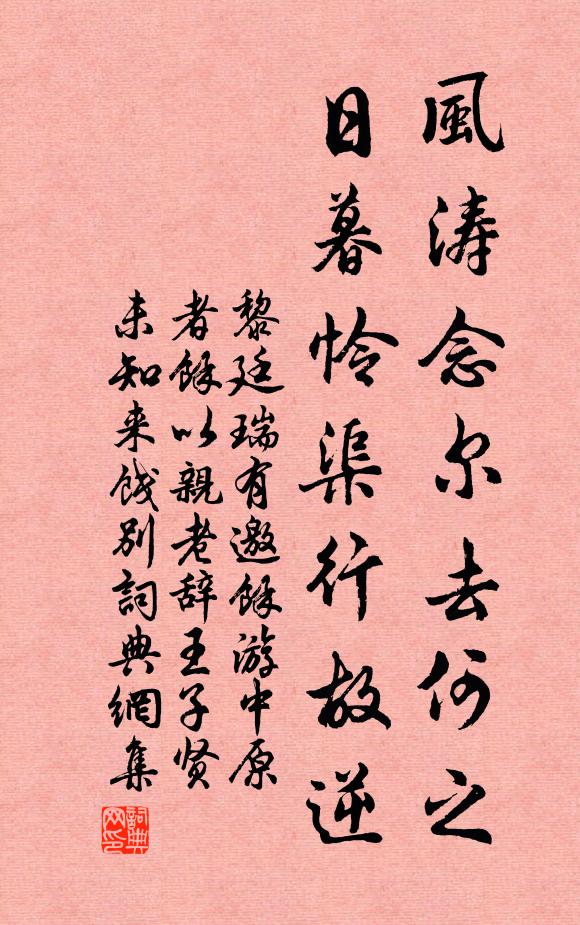 風涛念尔去何之
日暮怜渠行故逆
黎廷瑞有邀餘游中原
者餘以親老辞王子贤
未知来餞别詞典網集
詞典网印